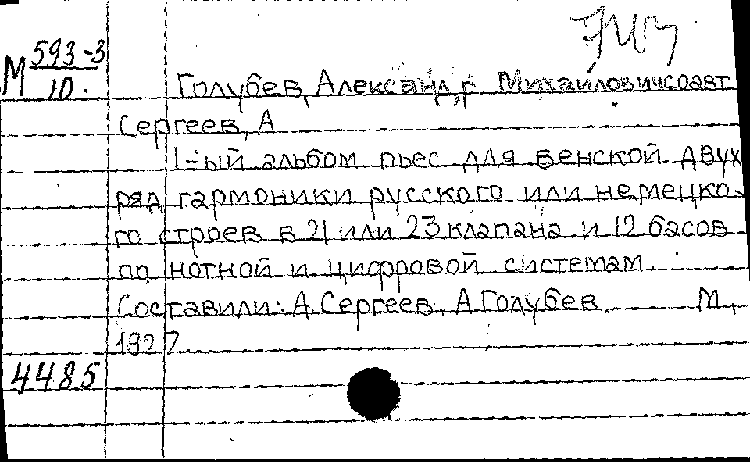 М 593-3
10.
Голубев, Александр Михайлович соавт
Сергеев, А
1-ый альбом пьес для венской двух
ряд гармоники русского или немецко-
го строев в 21 или 23 клапана и 12 басов
по нотной и цифровой системам.
Составили: А. Сергеев, А. Голубев. М,
1927
4485